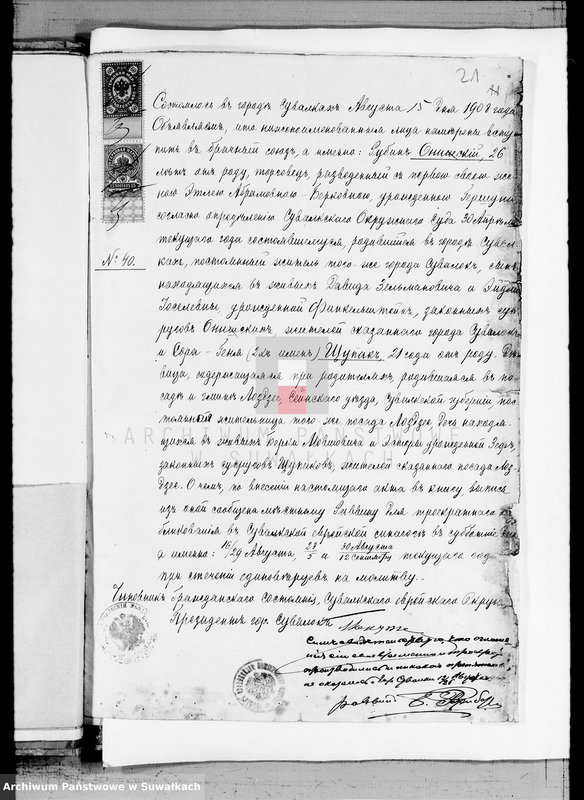 21
Состоялось въ городѣ Сувалкахъ Августа 15 дня 1908 года
Объявляемъ, что нижепоименованныя лица намѣрены всту-
пить въ брачный союзъ, а именно: Рубинъ Онишскій, 26
лѣтъ отъ роду, торговецъ, разведенный съ первою своею же-
ною Этлею Абрамовною-Берковною, урожденною
согласно опредѣленію Сувалкскаго Окружнаго Суда 30 Апрѣля
текущаго года состоявшемуся, родившійся въ городѣ Сувал-
№ 40.
кахъ, постоянный житель того-же города Сувалокъ, сынъ
находящихся въ живыхъ Давида Зельмановича и
Іоселевны, урожденной Финкельштейнъ, законныхъ суп-
руговъ Онишскихъ, жителей сказаннаго города Сувалокъ
и Сора-Геня (2хъ именъ) Щупакъ, 21 года отъ роду, дѣ-
вица, содержащаяся при родителяхъ, родившаяся въ по-
садѣ и гминѣ Лодзее, Сейнскаго уѣзда, Сувалкской губерніи, пос-
тоянная жительница того-же посада Лодзее, дочь находя-
щихся въ живыхъ Берки Мовшовича и Эстеры урожденной
законныхъ супруговъ Щупаковъ, жителей сказаннаго посада Лод-
зее. О чемъ, по внесеніи настоящаго акта въ книгу, выпись
изъ оной сообщена мѣстному Раввину для троекратнаго
бликованія въ Сувалкской еврейской синагогѣ въ субботніе
а именно: 16/29 Августа, 23/5 и 30 Августа/12 Сентября текущаго года
при стеченіи единовѣрцевъ на молитву.
Чиновникъ Гражданскаго Состоянія, Сувалкскаго еврейскаго Округа,
Президентъ гор. Сувалокъ
Симъ свидѣтельствую, что
производилась и никакихъ
не оказалось
раввинъ
ARCHIWUM PAŃSTWOWE
W SUWAŁKACH
Archiwum Państwowe w Suwałkach